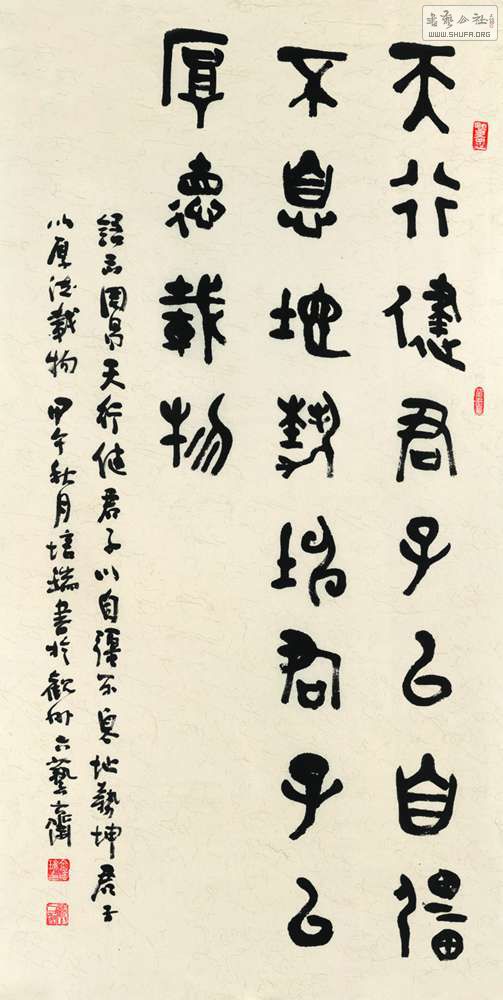 天行健君子以自强
不息地势坤君子以
厚德载物
語出周易天行健君子以自强不息地势坤君子
以厚德載物 甲午秋月培端書於觀州六藝齋
書藝公社
WWW.SHUFA.ORG